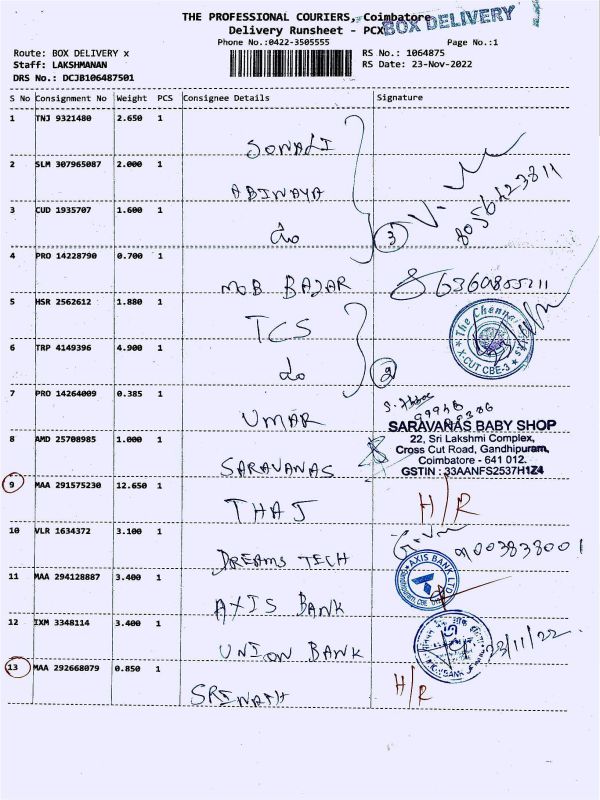 THE PROFESSIONAL COURIERS, Coimbatore
BOX DELIVERY
Delivery Runsheet - PCX
Phone No.:0422-3505555 Page No.:1
Route: BOX DELIVERY x RS No.: 1064875
Staff: LAKSHMANAN RS Date: 23-Nov-2022
DRS No.: DCJB106487501
S No Consignment No Weight PCS Consignee Details Signature
1 TNJ 9321480 2.650 1
SONALI
2 SLM 307965087 2.000 1
ABINAYA
8056423811
3 CUD 1935707 1.600 1
do 3
4 PRO 14228790 0.700 1
MOB BAZAR
5 HSR 2562612 1.880 1
TCS
The Chennai
X-CUT CBE-3
6 TRP 4149396 4.900 1
do 2
7 PRO 14264009 0.385 1
UMAR
SARAVANAS BABY SHOP
8 AMD 25708985 1.000 1
22, Sri Lakshmi Complex,
Cross Cut Road, Gandhipuram,
Coimbatore - 641 012.
SARAVANAS
GSTIN : 33AANFS2537H1Z4
9 MAA 291575230 12.650 1
THAJ H/R
10 VLR 1634372 3.100 1
9003838001
DREAMS TECH
AXIS BANK LTD
11 MAA 294128887 3.400 1
AXIS BANK
12 IXM 3348114 3.400 1
UNION BANK 23/11/22
13 MAA 292668079 0.850 1
SRINATH H/R